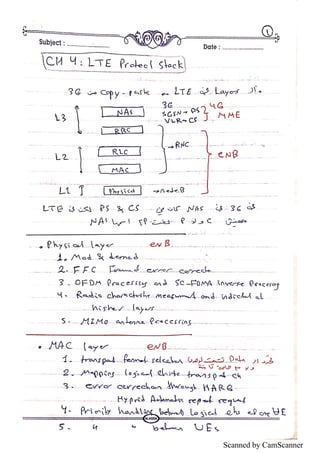 1
Subject :
Date :
CH 4 : LTE Protocol Stack
3G → Copy-paste ← LTE في Layers
3G
4G
L3
NAS
SGSN → PS
MME
VLR → CS
RRC
RNC
L2
RLC
eNB
MAC
L1
Physical
node B
LTE في PS & CS NAS 3G في
NAS
• Physical layer eNB
1. Mod & demod
2. FFC Forward error correcte
3. OFDM Processing and SC-FDMA inverse Processing
4. Radio charachterstic measurment and indication al
higher layers
5. MIMO antenna Processing
• MAC layer eNB
1. transport format selection Data
2. Mapping logical ch into transport ch
3. error correction through HARQ
Hybrid Automatic repeat request
4. Priority handling between Logical chs of one UE
5. " " between UEs
Scanned by CamScanner